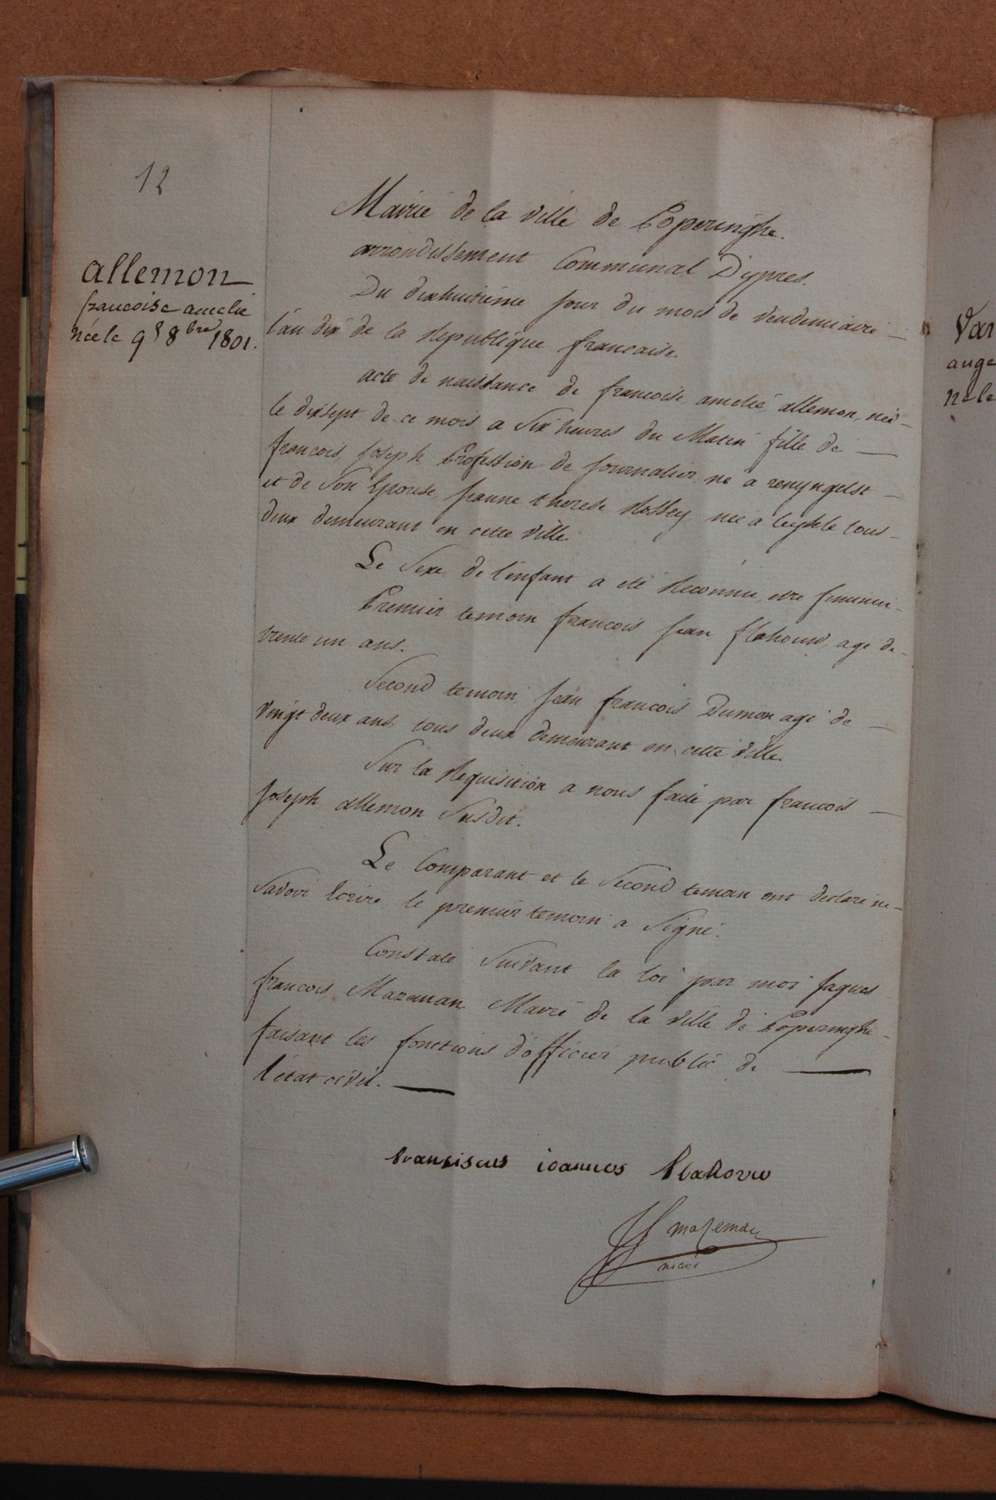 12
allemon
francoise amelie
née le 9 8bre 1801.
Mairie de la ville de Poperinghe.
arrondissement Communal D'ypres.
Du dixhuitieme jour du mois de vendemiaire
l'an dix de la Republique francaise.
acte de naissance de francoise amelie allemon, née
le dixsept de ce mois a six heures du Matin fille de
francois Joseph Profession de Journalier né a renyngelst
et de son Epouse jeanne therese née a tous
deux demeurant en cette ville.
Le sexe de l'enfant a été Reconnu etre feminin
Premier temoin francois jean flahouw age de
trente un ans.
Second temoin jean francois Dumon agé de
vingt deux ans tous deux demeurant en cette ville.
Sur la Requisition a nous faite par francois
Joseph allemon susdit.
Le Comparant et le second temoin ont declaré ne
savoir Ecrire le premier temoin a signé.
Constaté suivant la loi par moi jaques
francois Mazeman Maire de la ville de Poperinghe
faisant les fonctions d'officier public de
l'état civil.
franciscus ioannes flahovw
mazeman
maire
Van
ange
née le